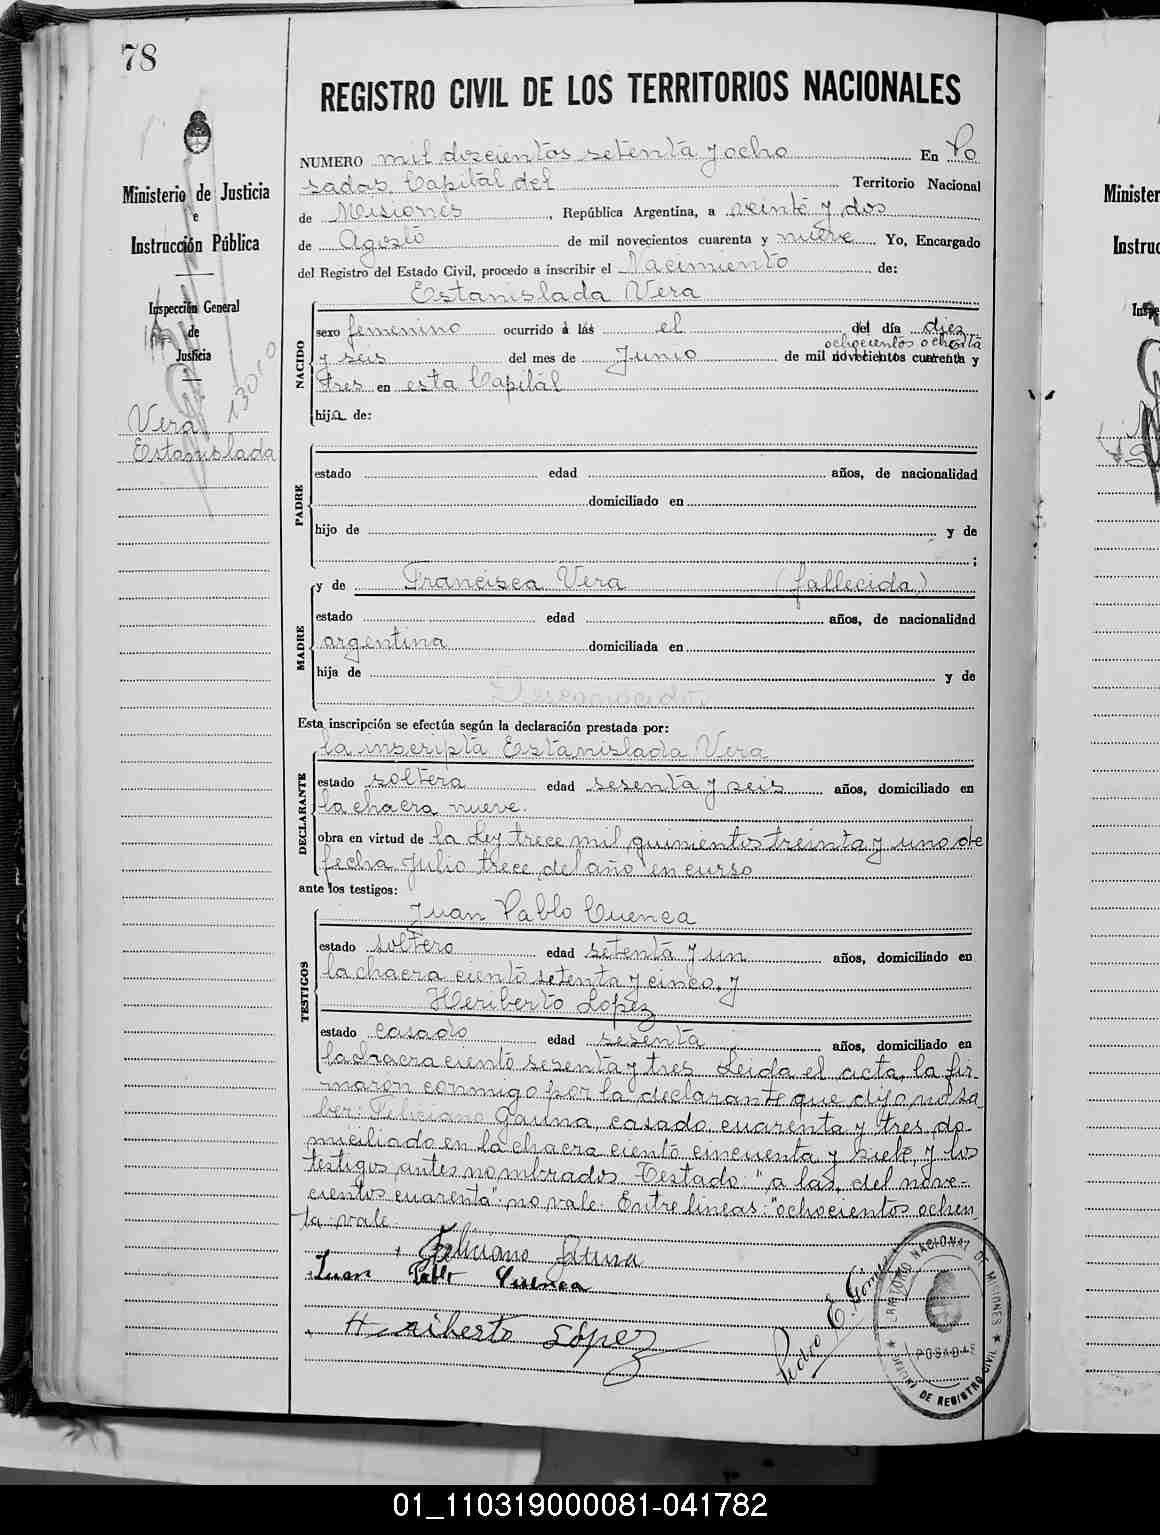 78
REGISTRO CIVIL DE LOS TERRITORIOS NACIONALES
Ministerio de Justicia
e
Instrucción Pública
Inspección General
de
Justicia
Vera
Estanislada
NUMERO mil doscientos setenta y ocho En Po
sadas Capital del Territorio Nacional
de Misiones, República Argentina, a veinte y dos
de Agosto de mil novecientos cuarenta y nueve Yo, Encargado
del Registro del Estado Civil, procedo a inscribir el Nacimiento de:
Estanislada Vera
NACIDO
sexo femenino ocurrido a las el del día diez
ochocientos ochenta
y seis del mes de Junio de mil novecientos cuarenta y
tres en esta Capital
hija de:
PADRE
estado edad años, de nacionalidad
domiciliado en
hijo de y de
;
MADRE
y de Francisca Vera (fallecida)
estado edad años, de nacionalidad
argentina domiciliada en
hija de y de
Desconocidos
Esta inscripción se efectúa según la declaración prestada por:
la inscripta Estanislada Vera
DECLARANTE
estado soltera edad sesenta y seis años, domiciliado en
la chacra nueve.
obra en virtud de la Ley trece mil quinientos treinta y uno de
fecha julio trece del año en curso
ante los testigos:
Juan Pablo Cuenca
TESTIGOS
estado soltero edad setenta y un años, domiciliado en
la chacra ciento setenta y cinco, y
Heriberto Lopez
estado casado edad sesenta años, domiciliado en
la chacra ciento sesenta y tres Leida el acta, la fir-
maron conmigo por la declarante que dijo no sa
ber: Feliciano Gauna, casado cuarenta y tres, do-
miciliado en la chacra ciento cincuenta y siete, y los
testigos antes nombrados. Testado: "a las, del nove-
cientos cuarenta": no vale. Entre lineas: "ochocientos ochen
ta vale.
Feliciano Gauna
Juan Pablo Cuenca
Heriberto López
Pedro E. Gómez
TERRITORIO NACIONAL DE MISIONES
POSADAS
DE REGISTRO CIVIL
Minister
Instruc
Inspe
01_110319000081-041782